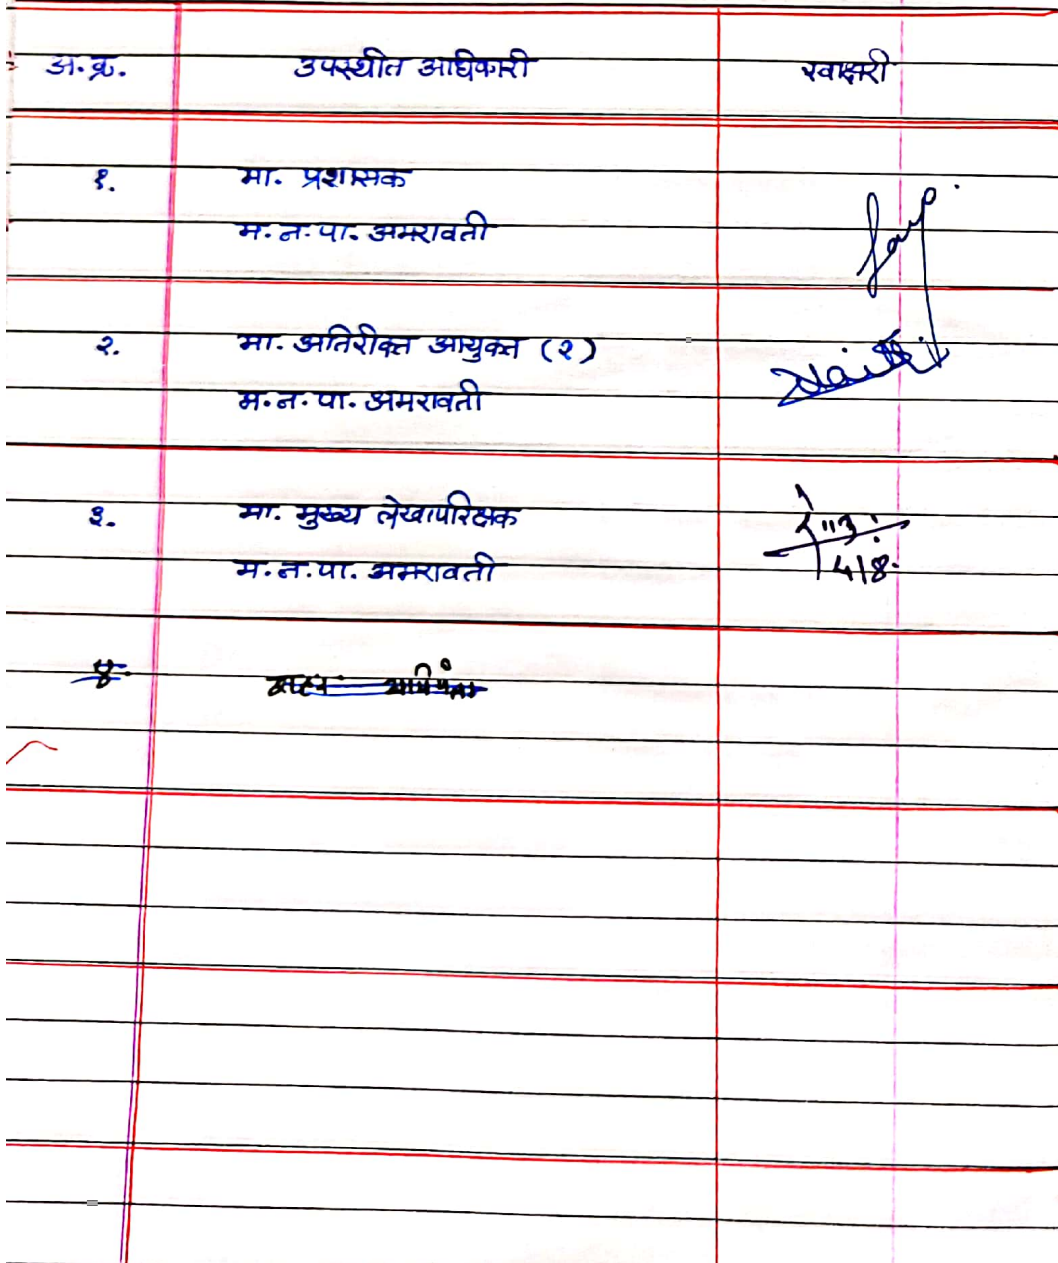 अ.क्र. उपस्थीत अधिकारी स्वाक्षरी
१. मा. प्रशासक
म.न.पा. अमरावती
२. मा. अतिरीक्त आयुक्त (२)
म.न.पा. अमरावती
३. मा. मुख्य लेखापरिक्षक
म.न.पा. अमरावती
४.